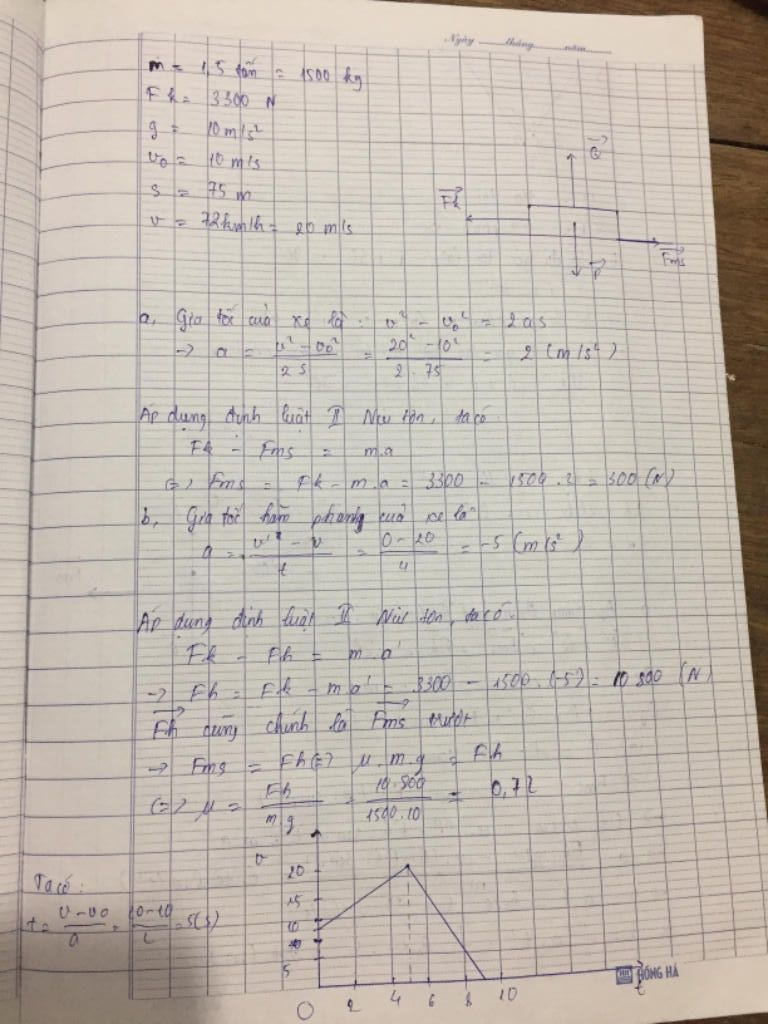 Ngày tháng năm
m = 1,5 tấn = 1500 kg
Fk = 3300 N
g = 10 m/s²
v₀ = 10 m/s
s = 75 m
v = 72km/h = 20 m/s
Q
Fk
Fms
P
a, Gia tốc của xe là : v² - v₀² = 2as
→ a = (v² - v₀²)/(2s) = (20² - 10²)/(2 . 75) = 2 (m/s²)
Áp dụng định luật II Niu tơn, ta có
Fk - Fms = m.a
(=) Fms = Fk - m.a = 3300 - 1500 . 2 = 300 (N)
b, Gia tốc hãm phanh của xe là
a = (v' - v)/t = (0 - 20)/4 = -5 (m/s²)
Áp dụng định luật II Niu tơn, ta có
Fk - Fh = m.a'
→ Fh = Fk - m a' = 3300 - 1500 . (-5) = 10 800 (N)
Fh cũng chính là Fms trượt
→ Fms = Fh (=) μ.m.g = Fh
(=) μ = Fh/(m g) = 10.800/(1500.10) = 0,72
v
20
15
10
5
O 2 4 6 8 10 t
Ta có :
t = (v - v₀)/a = (20 - 10)/2 = 5(s)
HH HỒNG HÀ